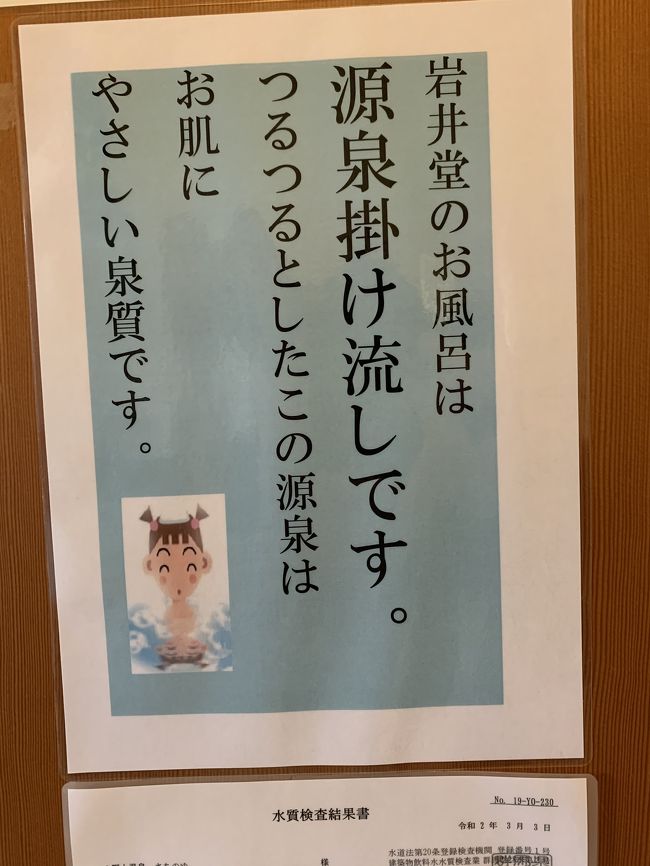 岩井堂のお風呂は
源泉掛け流しです。
つるつるとしたこの源泉は
お肌に
やさしい泉質です。
No. 19-YO-230
水質検査結果書
令和 2 年 3 月 3 日
水道法第20条登録検査機関 登録番号1号
様
建築物飲料水水質検査業